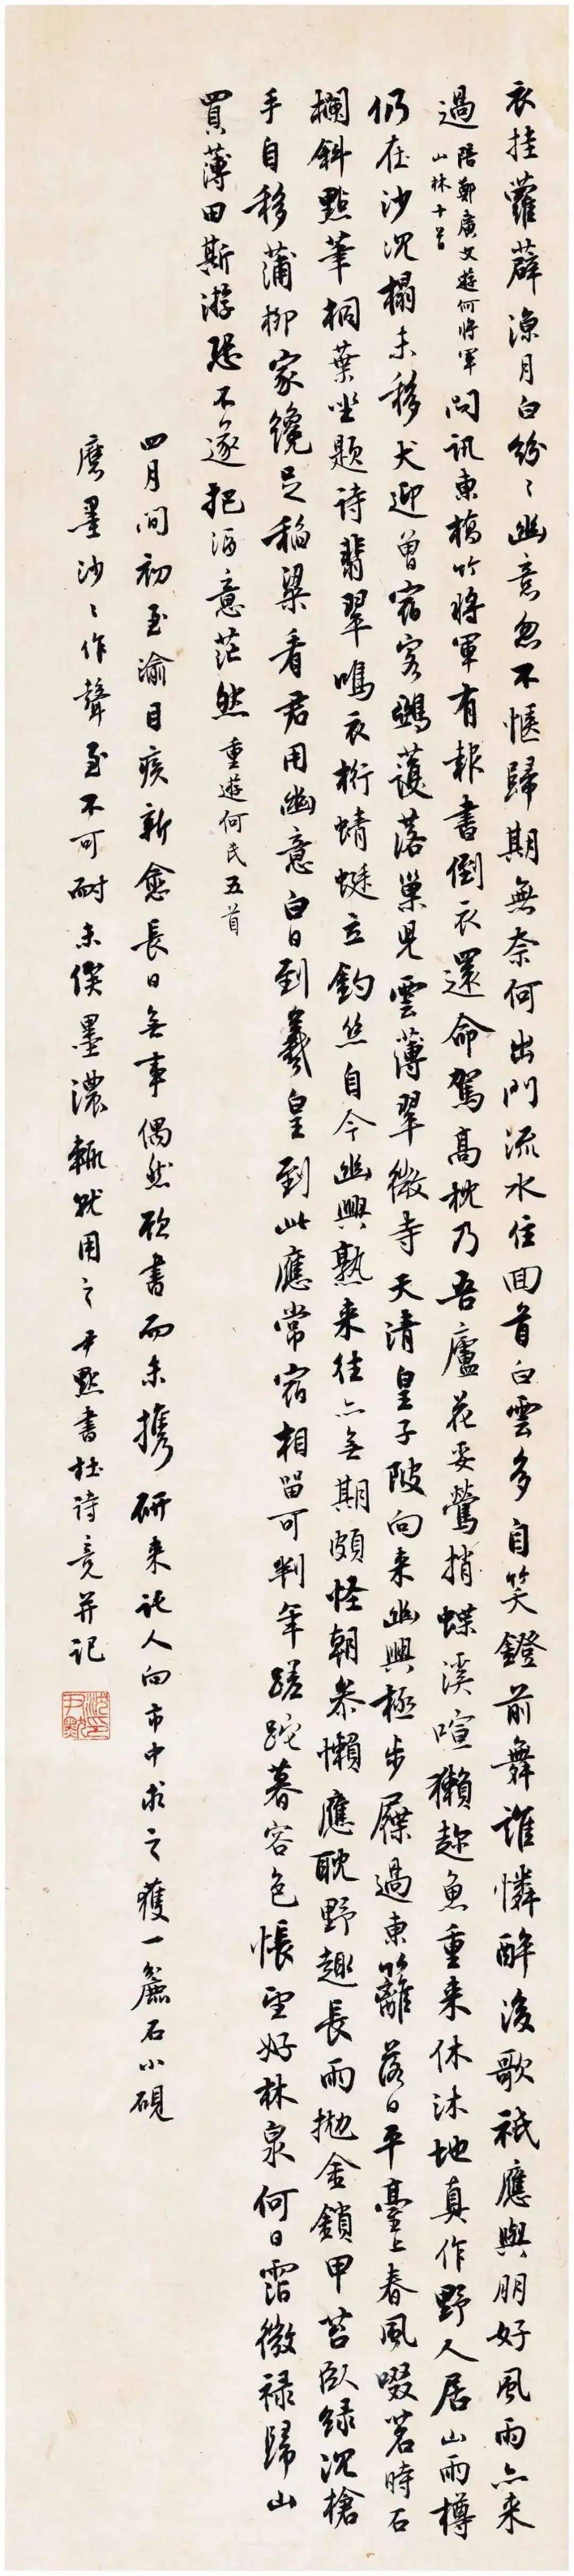 衣挂蘿薜涼月白紛〻幽意忽不愜歸期無奈何出門流水住回首白雲多自笑鐙前舞誰憐醉後歌祇應與朋好風雨亦来
過陪鄭廣文遊何將軍山林十首問訊東橋竹將軍有報書倒衣還命駕高枕乃吾廬花妥鶯捎蝶溪喧獺趂魚重来休沐地真作野人居山雨樽
仍在沙沉榻未移犬迎曾宿客鴉護落巢兒雲薄翠微寺天清皇子陂向来幽興極步屧過東籬落日平臺上春風啜茗時石
欄斜點筆桐葉坐題詩翡翠鳴衣桁蜻蜓立釣絲自今幽興熟来往亦無期頗怪朝參懶應耽野趣長雨抛金鎖甲苔臥綠沉槍
手自移蒲柳家纔足稻粱看君用幽意白日到羲皇到此應常宿相留可判年蹉跎暮容色悵望好林泉何日霑微禄歸山
買薄田斯游恐不遂把酒意茫然重遊何氏五首
四月間初至渝目疾新愈長日無事偶然欲書而未攜研来託人向市中求之獲一麄石小硯
磨墨沙〻作聲至不可耐未俟墨濃輒就用之尹默書杜詩竟并記
沈氏尹默